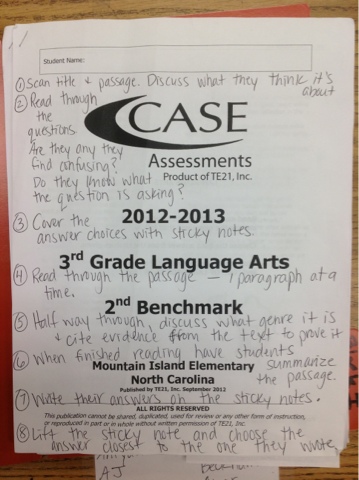 Student Name:
① Scan title & passage. Discuss what they think it's
about
② Read through
the
questions.
Are they any they
find confusing?
Do they know what
the question is asking?
CASE
Assessments
Product of TE21, Inc.
2012-2013
③ Cover the
answer choices with sticky notes.
3rd Grade Language Arts
④ Read through the passage — 1 paragraph at a
time.
2nd Benchmark
⑤ Half way through, discuss what genre it is
& cite evidence from the text to prove it
⑥ When finished reading have students
summarize
Mountain Island Elementary
the passage.
North Carolina
Published by TE21, Inc. September 2012
⑦ Write their answers on the sticky notes.
ALL RIGHTS RESERVED
This publication cannot be shared, duplicated, used for review or any other form of instruction,
or reproduced in part or in whole without written permission of TE21, Inc.
⑧ Lift the sticky note and choose the
answer closest to the one they wrote
AJ